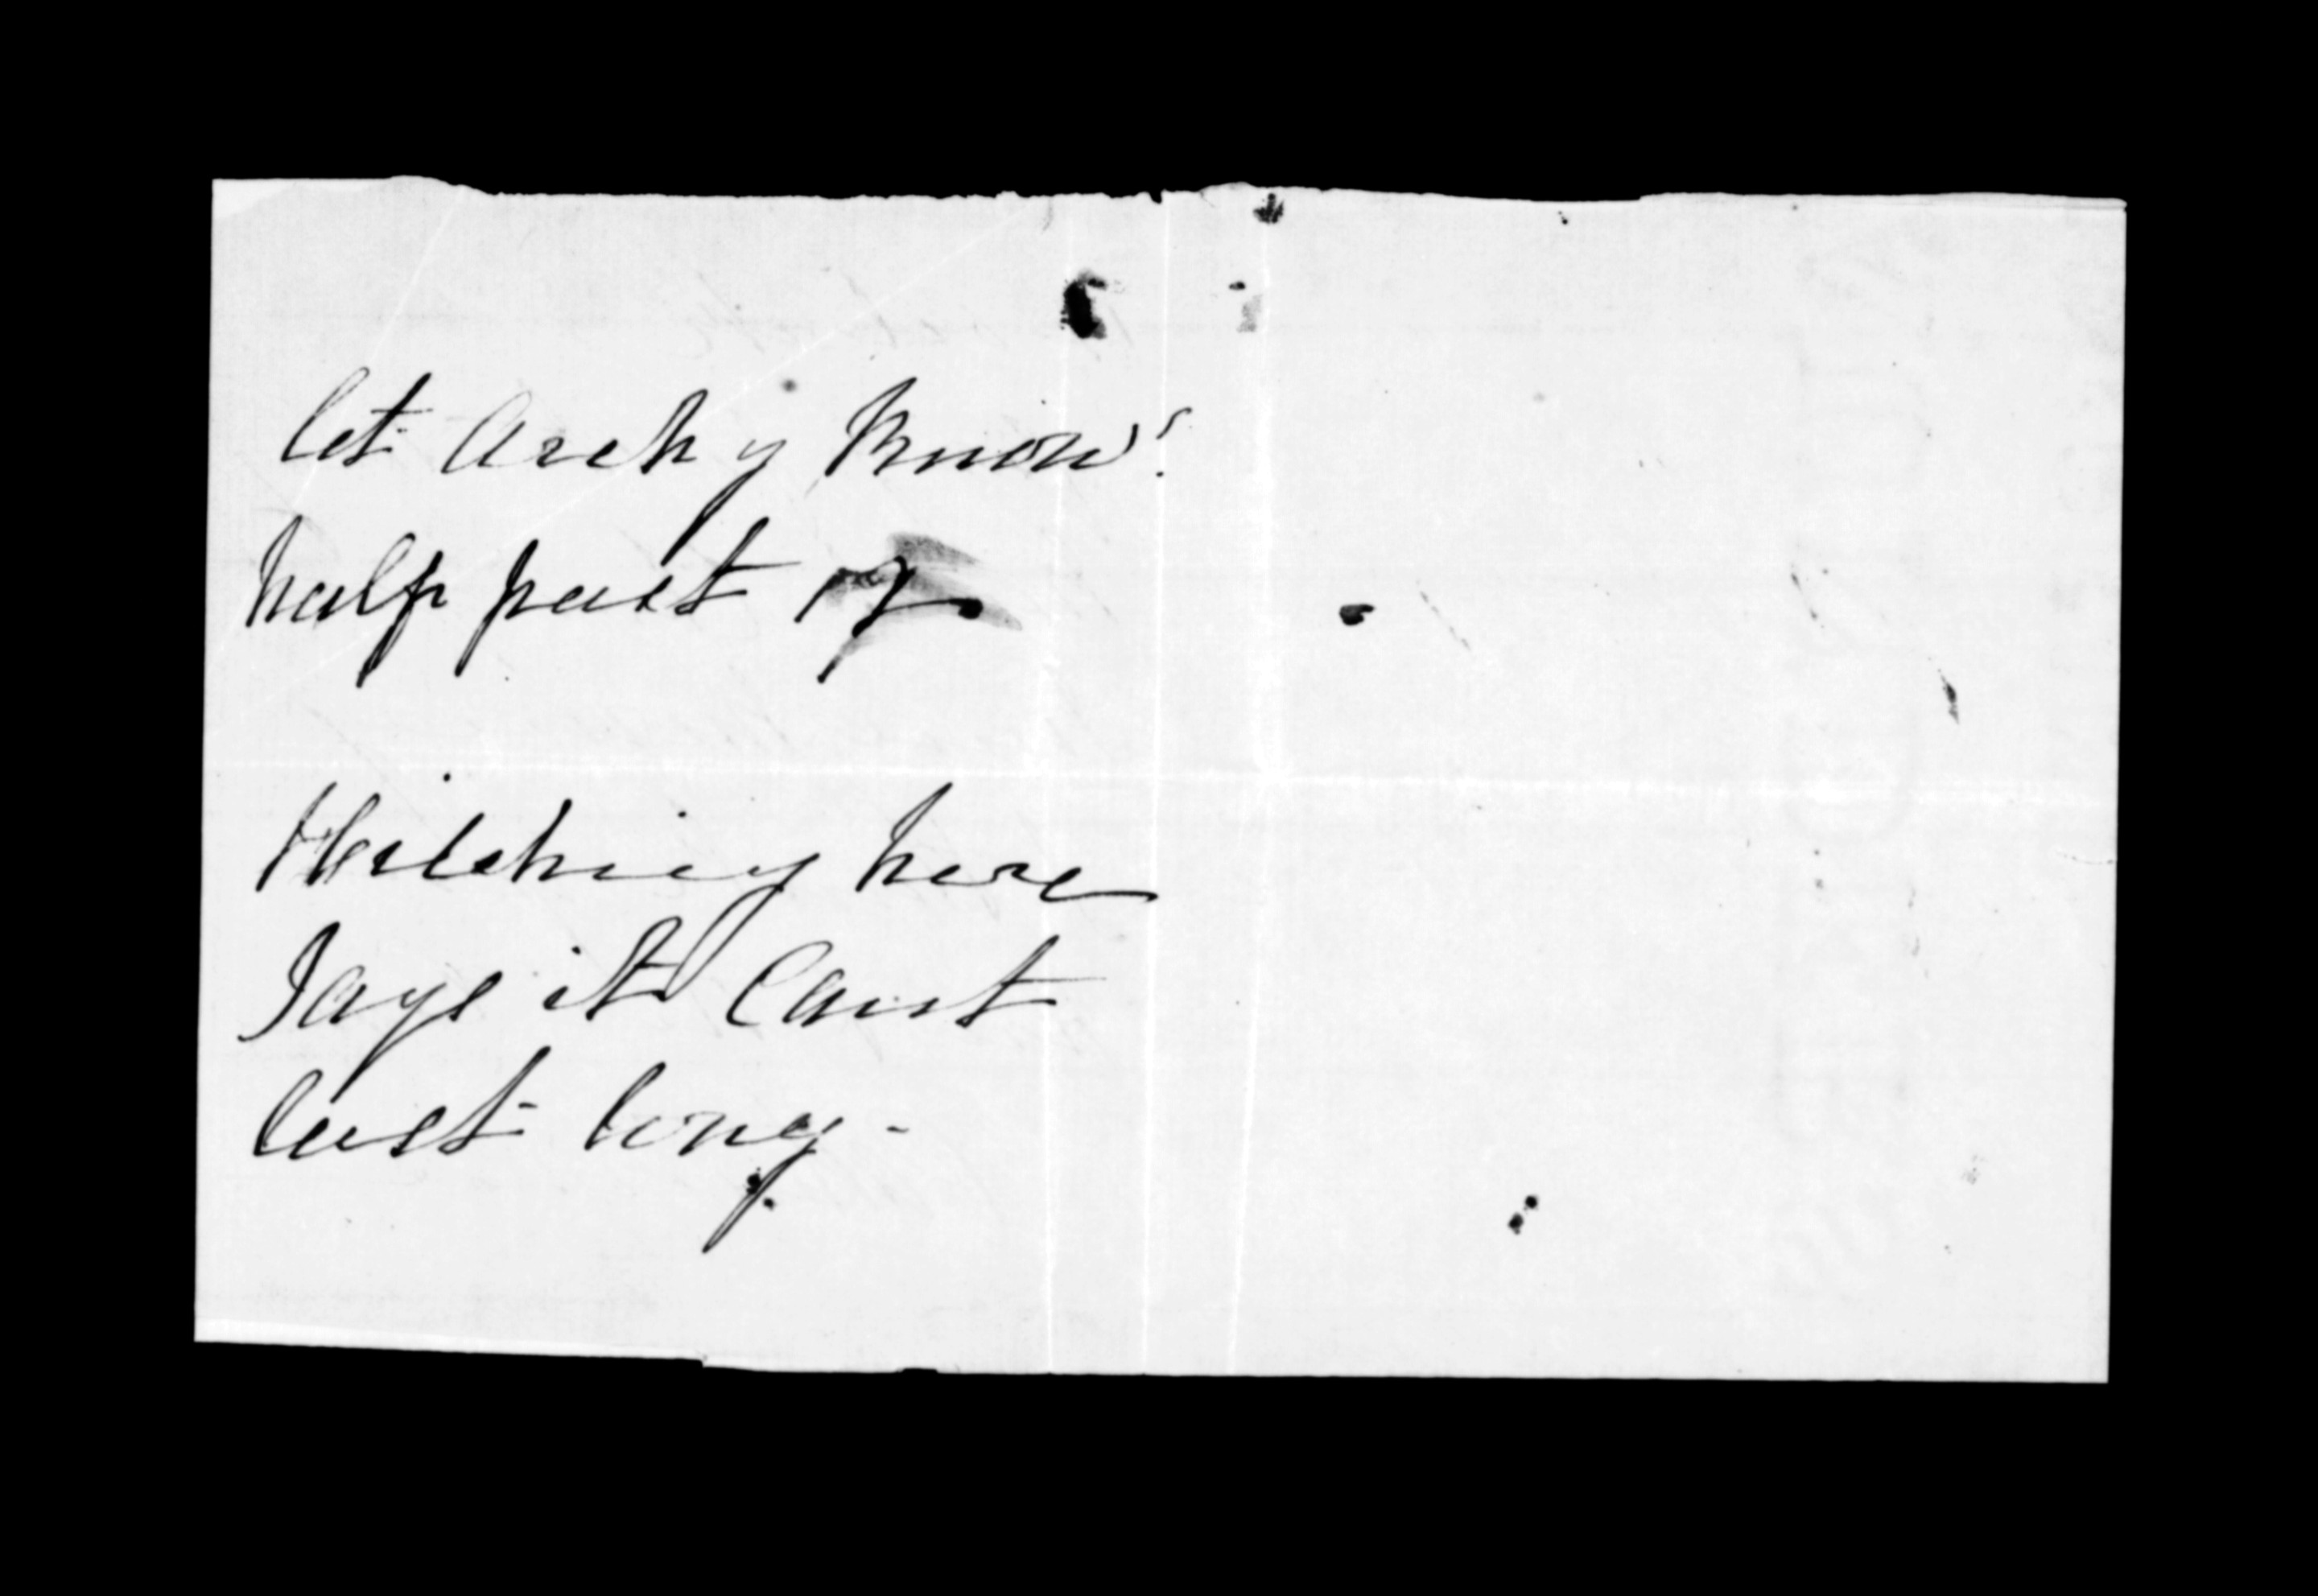 let Archy know?
half past 12
Hitchings here
Says it cant
last long -